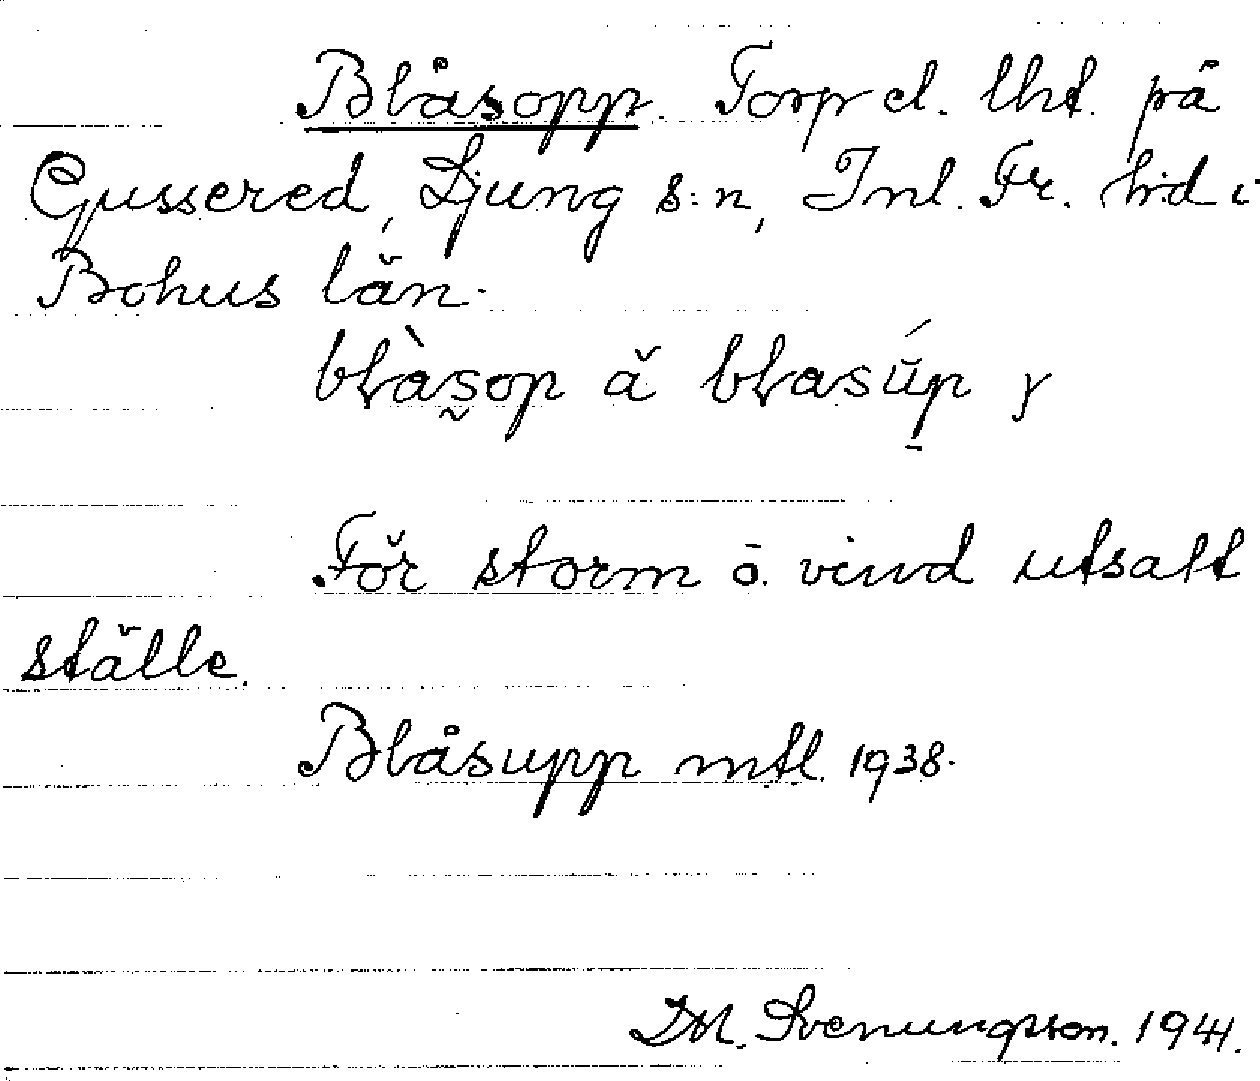 Blåsopp. Torp el. lht. på
Gussered, Ljung s:n, Inl. Fr. hd i
Bohus län.
blàsop ä blasúp y
För storm o. vind utsatt
ställe.
Blåsupp mtl. 1938.
D.M. Svenungsson. 1941.